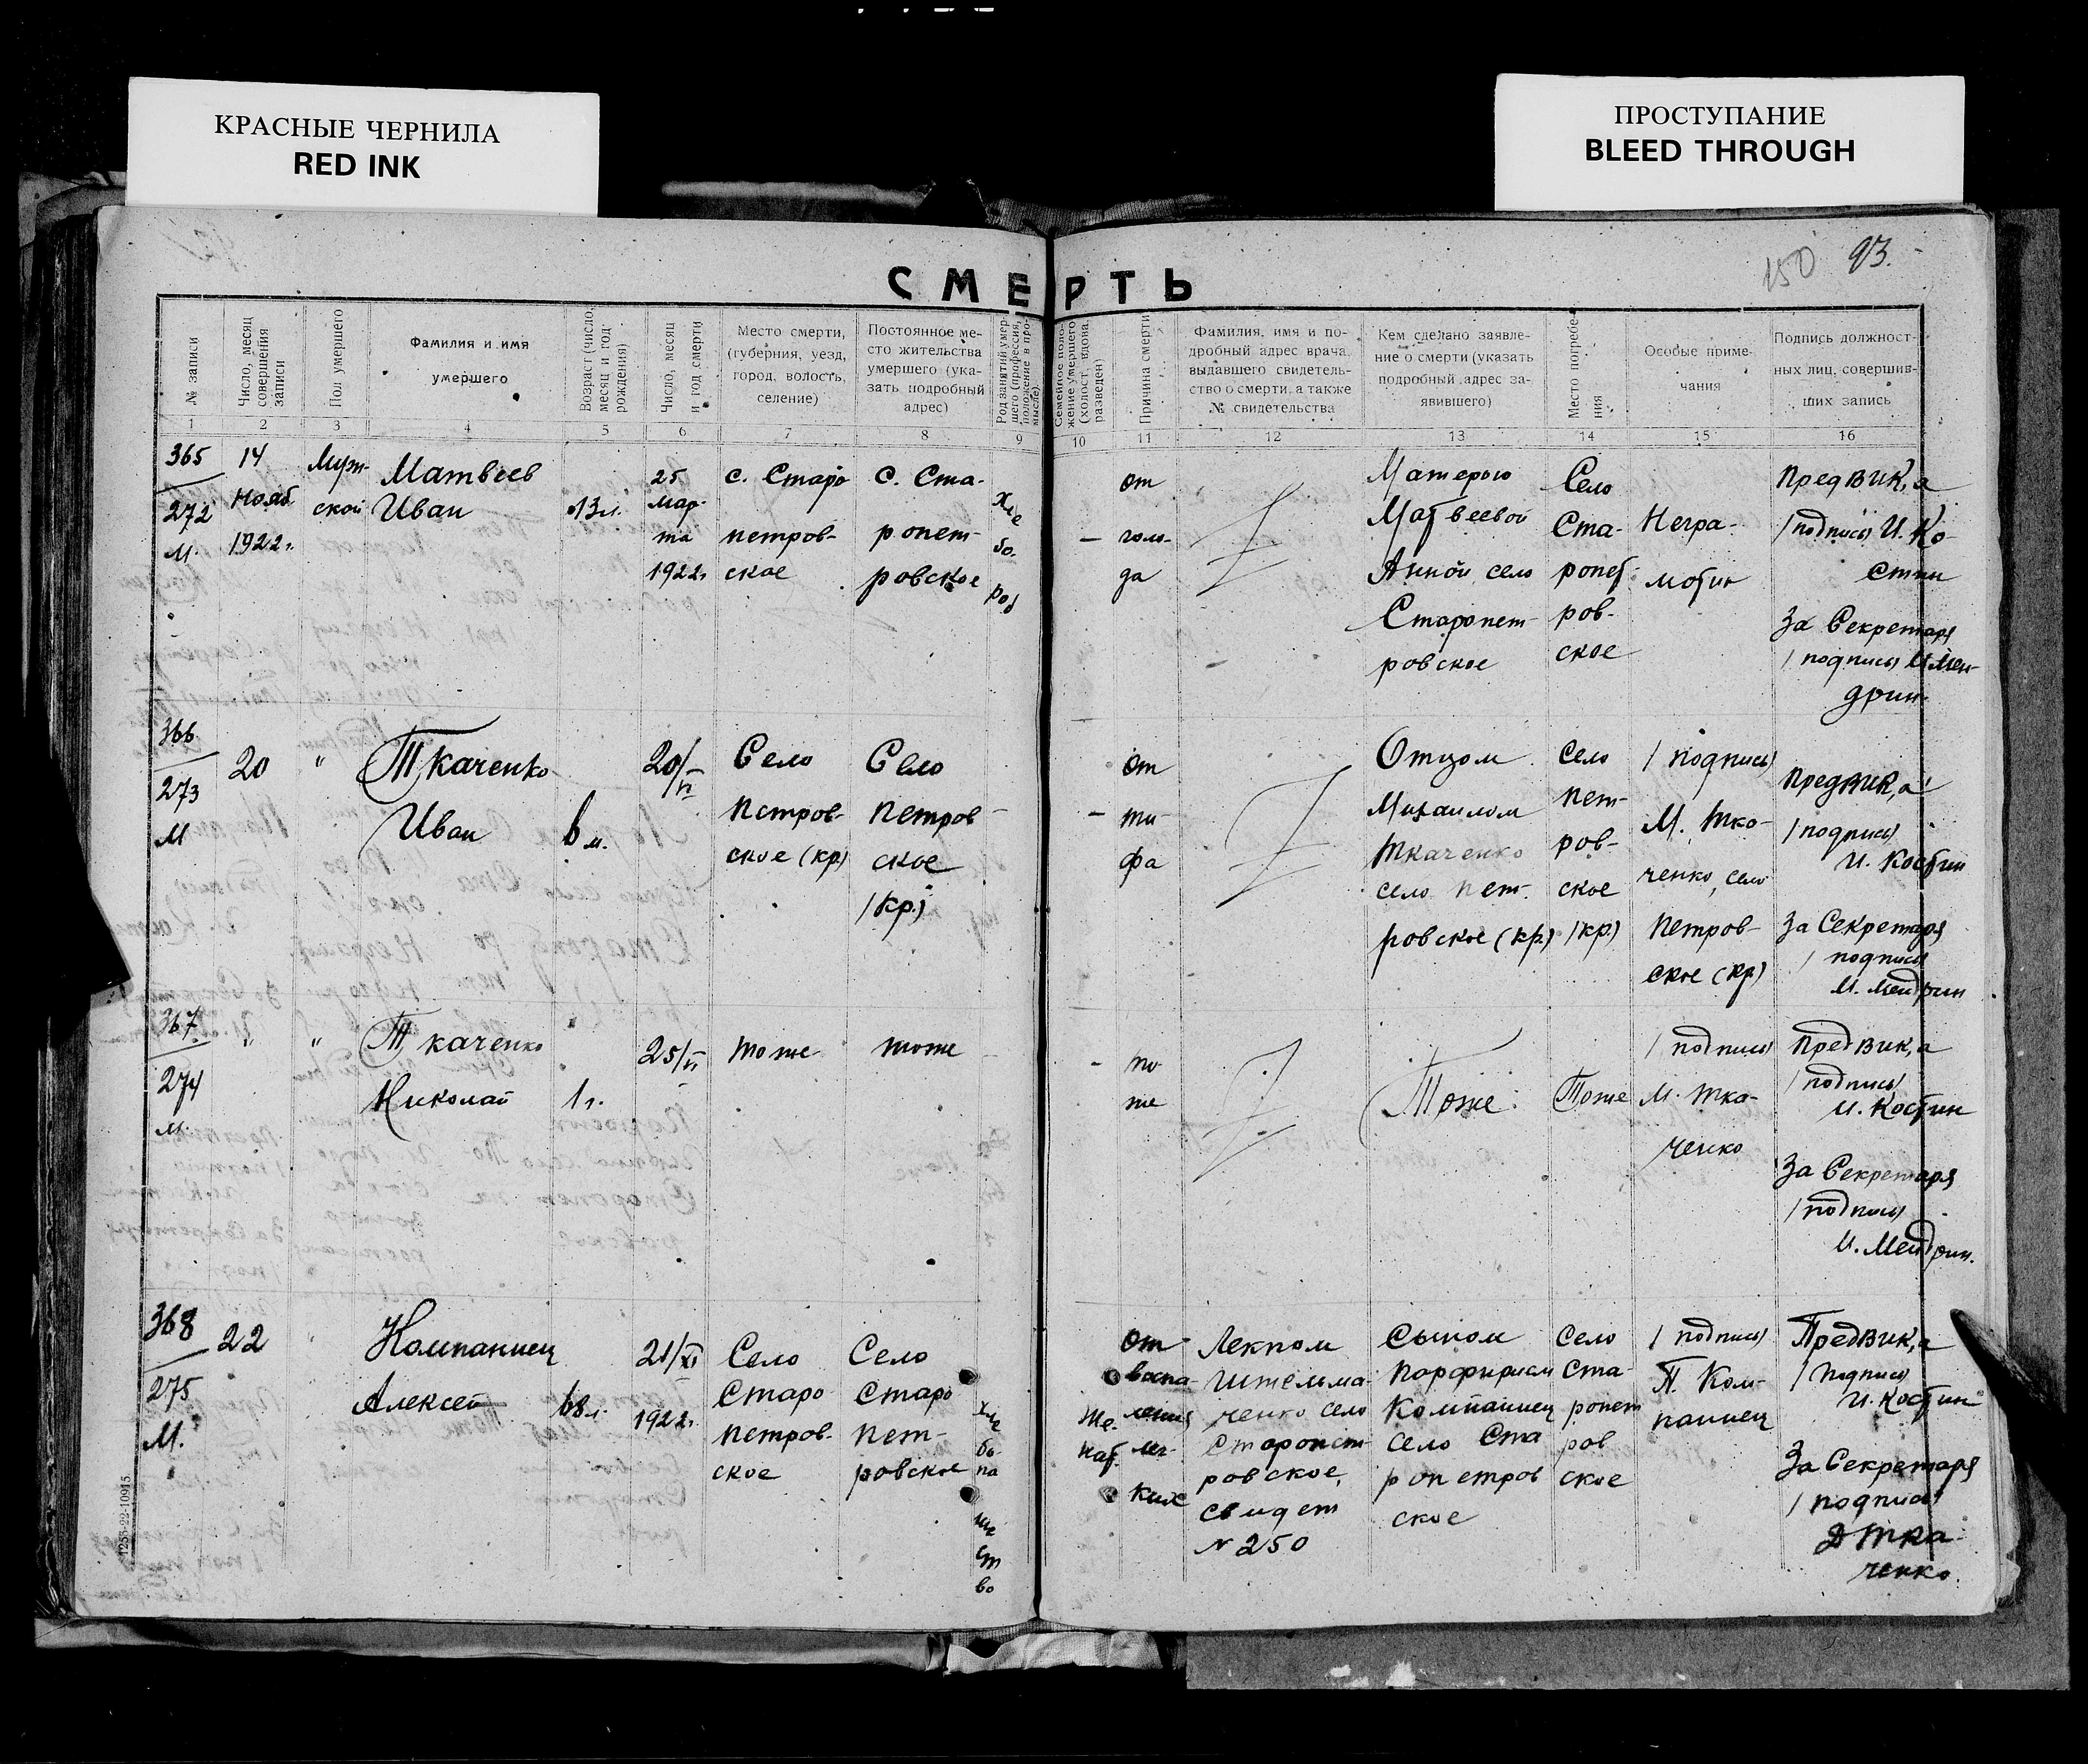 КРАСНЫЕ ЧЕРНИЛА
RED INK
ПРОСТУПАНИЕ
BLEED THROUGH
150 93.
СМЕРТЬ
№ записи
Число, месяц совершения записи
Пол умершего
Фамилия и имя
умершего
Возраст (число, месяц и год рождения)
Число, месяц и год смерти
Место смерти,
(губерния, уезд,
город, волость,
селение)
Постоянное ме-
сто жительства
умершего (ука-
зать подробный
адрес)
Род занятий умер-
шего (профессия,
положение в про-
мысле).
Семейное поло-
жение умершего
(холост, вдова,
разведен)
Причина смерти
Фамилия, имя и по-
дробный адрес врача,
выдавшего свидетель-
ство о смерти, а также
№ свидетельства
Кем сделано заявле-
ние о смерти (указать
подробный адрес за-
явившего)
Место погребе-
ния
Особые приме-
чания
Подпись должност-
ных лиц, совершив-
ших запись
1 2 3 4 5 6 7 8 9 10 11 12 13 14 15 16
365
272
М.
14
Нояб.
1922 г.
Муж-
ской
Матвеев
Иван
13 л.
25
мар-
та
1922 г.
с. Старо
петров-
ское
с. Ста-
ропет-
ровское
Хле
бо.
роб
—
от
голо-
да
Матерью
Матвеевой
Анной село
Старопет-
ровское
Село
Ста-
ропет-
ров-
ское
Негра-
мотин
ПредВИК,а
/подпись/ И. Ко-
стин
За Секретаря
/подпись/ И. Мен-
дрин
366
273
М
20
"
Ткаченко
Иван
6 м.
20/VI
Село
Петров-
ское (кр)
Село
Петров
ское
/кр./
-
от
ти-
фа
Отцом
Михаилом
Ткаченко
село Пет-
ровское (кр)
село
Пет-
ров-
ское
/кр/
/подпись/
М. Тка-
ченко, село
Петров-
ское (кр)
ПредВИК,а
/подпись/
И. Костин
За Секретаря
/подпись/
И. Мендрин
367
274
М.
"
"
Ткаченко
Николай
1 г.
25/VI
тоже
тоже
-
то
же
Тоже
Тоже
/подпись/
М. Тка-
ченко
ПредВик,а
/подпись/
И. Костин
За Секретаря
/подпись/
И. Мендрин.
368
275
М.
22
"
Компаниец
Алексей
68 л.
21/XI
1922 г.
Село
Старо
петров-
ское
Село
Старо
пет-
ровское
хле
бо-
па
ше
ст
во
Же.
нат.
от
воспа-
ления
лег-
ких
Лекпом
Шительма-
ченко село
Старопет-
ровское,
свидет
№ 250
Сыном
Порфирием
Компаниец
село Ста
ропетров
ское
село
Ста-
ропет
ров
ское
/подпись/
П. Ком-
паниец
ПредВик,а
/подпись/
И. Костин
За Секретаря
/подпись/
Д Тка-
ченко.
1256-22-10915